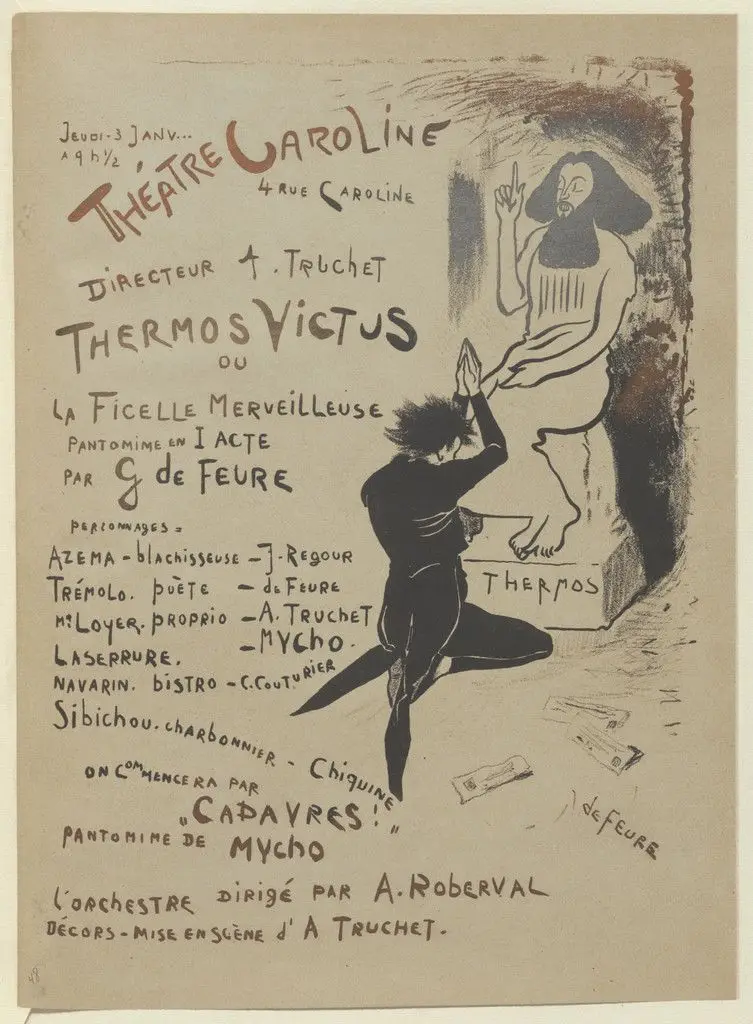 Jeudi-3 Janv...
A 9 h ½
Théâtre Caroline
4 rue Caroline
Directeur A. Truchet
Thermos Victus
ou
La Ficelle Merveilleuse
Pantomime en I acte
par G de Feure
personnages =
Azema - blachisseuse - J. Regour
Trémolo. puète - de Feure
Mr Loyer. proprio - A. Truchet
Laserrure. - Mycho.
Navarin. bistro - C. Couturier
Sibichou. charbonnier - Chiquine
on commencera par
"Cadavres!"
pantomime de Mycho
l'orchestre dirigé par A. Roberval
Décors - mise en scène d'A Truchet.
THERMOS
de Feure
48